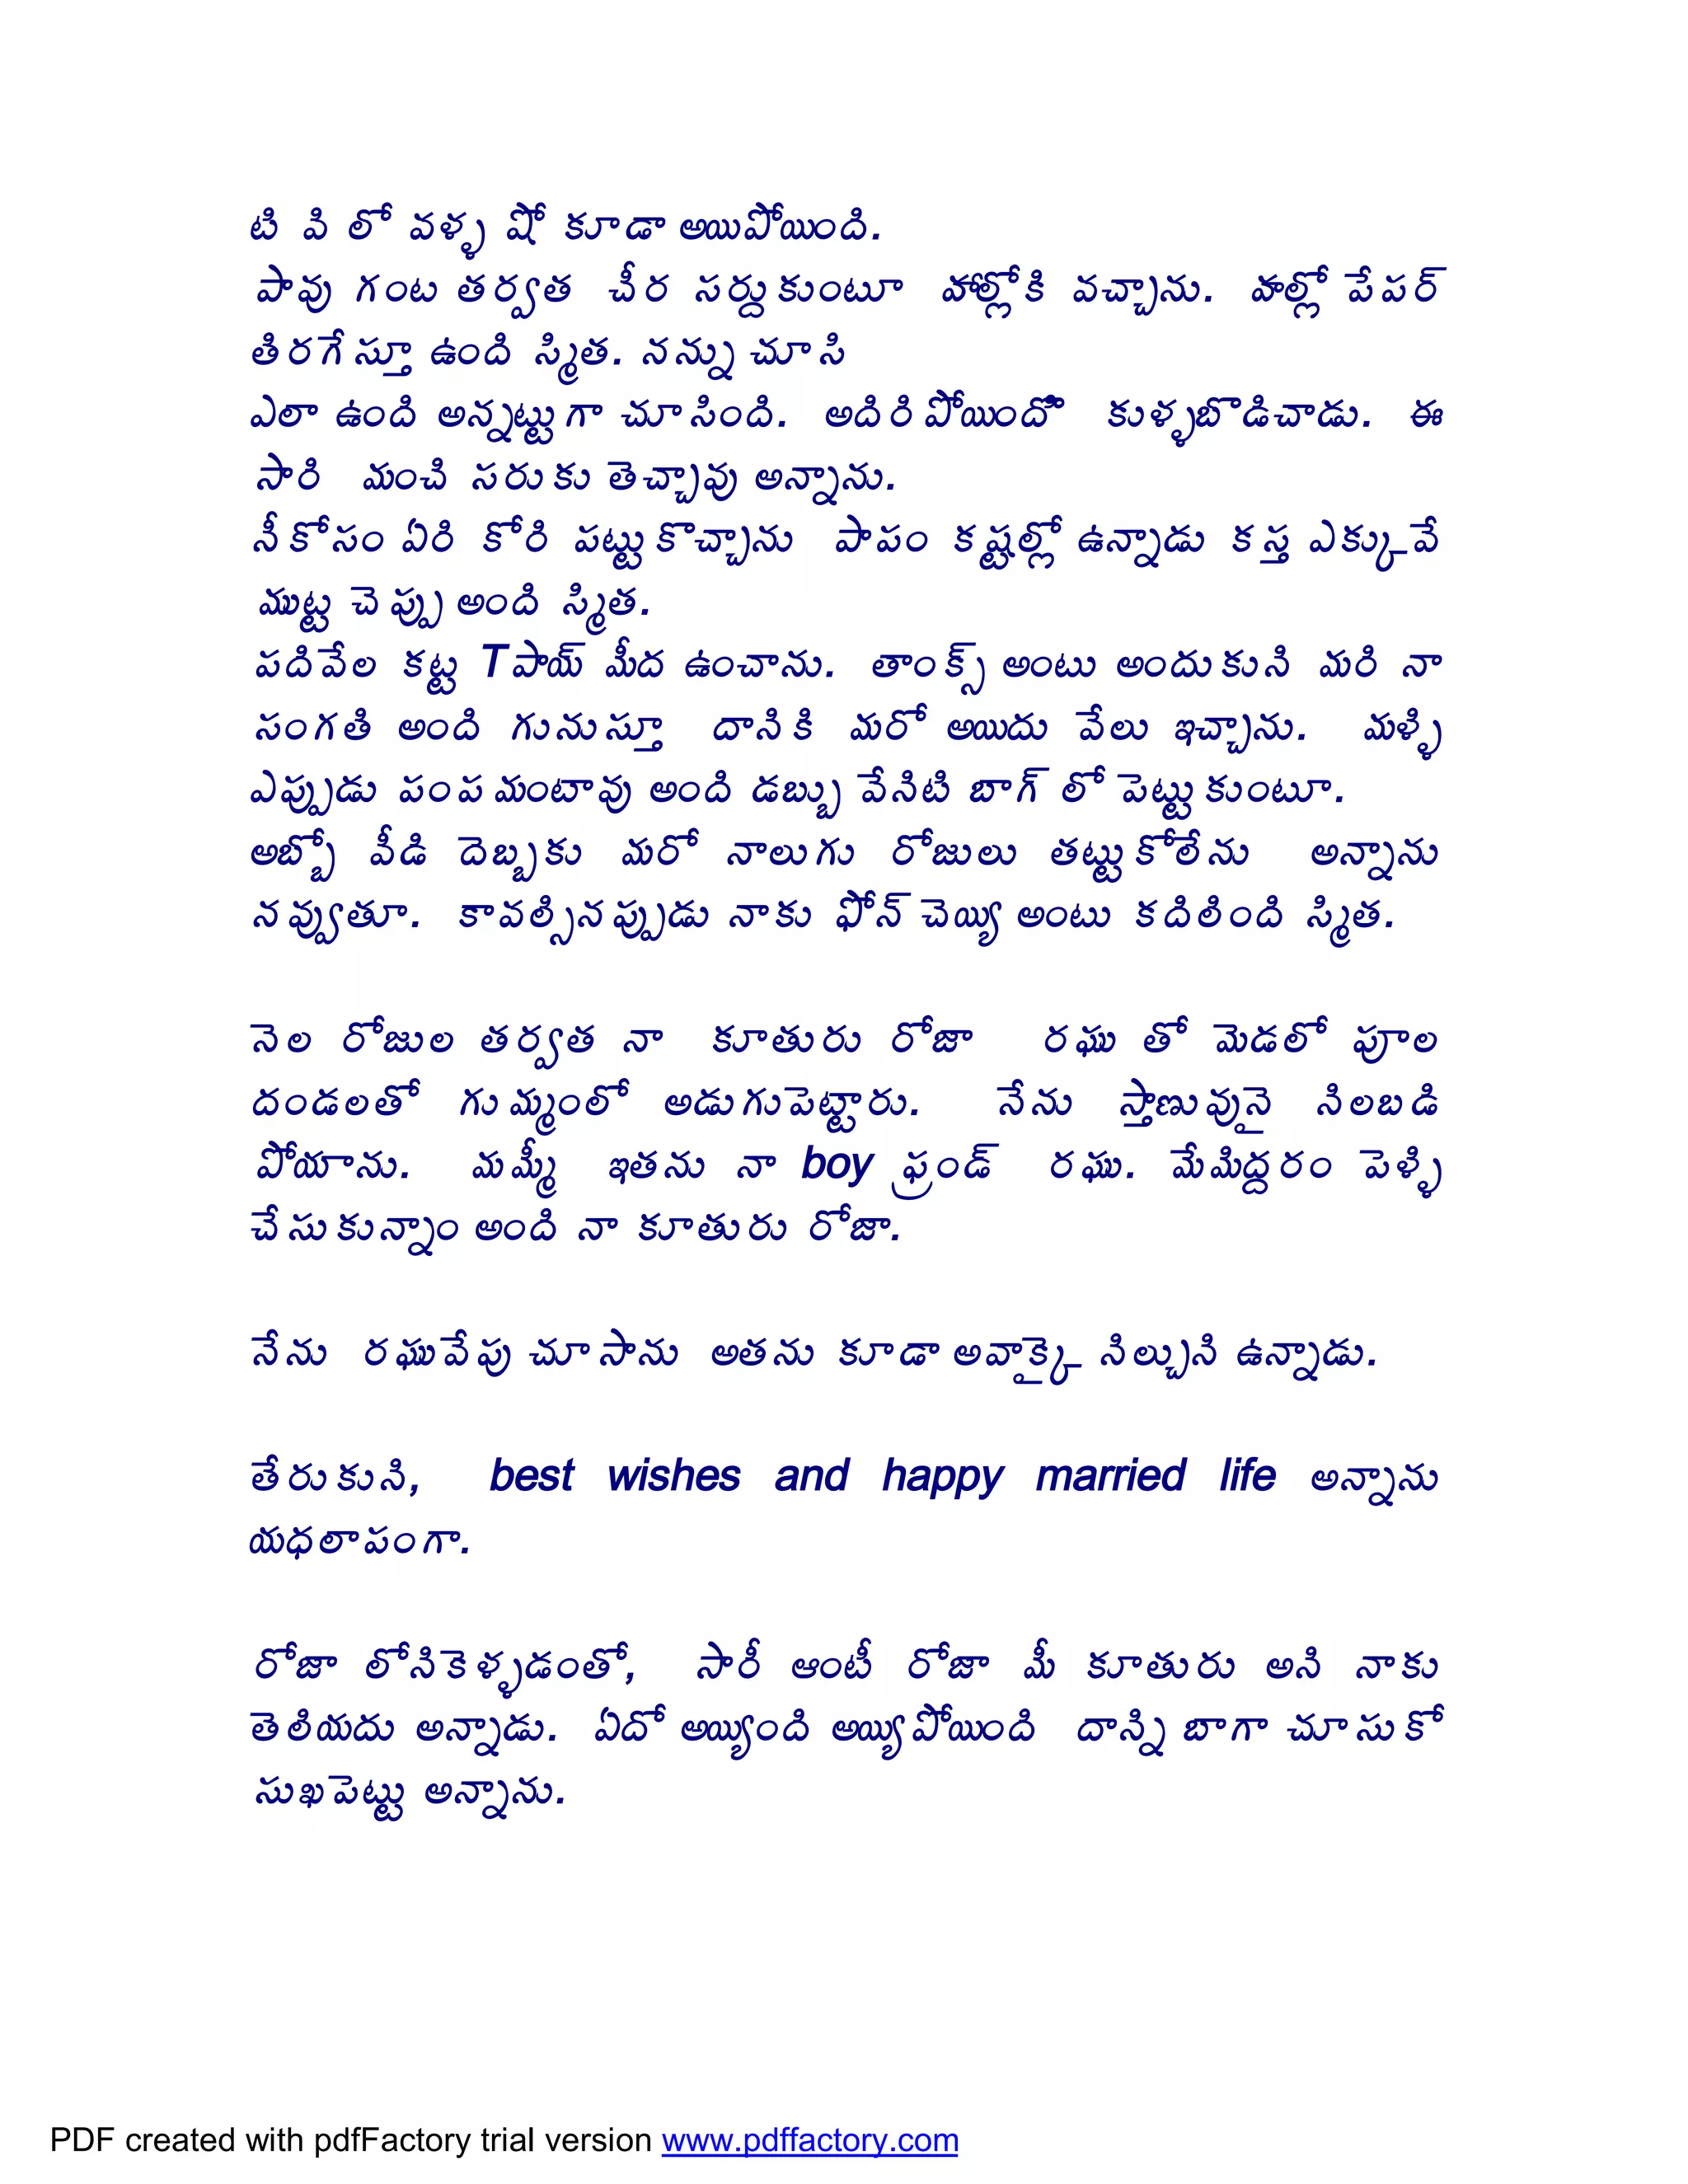 టి వి లో వళ్ళ షో కూడా అయిపోయింది.
పావు గంట తర్వత చీర సర్దుకుంటూ హాల్లోకి వచ్చాను. హల్లో పేపర్
తిరగేస్తూ ఉంది స్మిత. నన్ను చూసి
ఎలా ఉంది అన్నట్టుగా చూసింది. అదిరిపోయిందొ కుళ్ళబొడిచాడు. ఈ
సారి మంచి సరుకు తెచ్చావు అన్నాను.
నీకోసం ఏరి కోరి పట్టుకొచ్చాను పాపం కష్టల్లో ఉన్నాడు కస్త ఎక్కువే
ముట్ట చెప్పు అంది స్మిత.
పదివేల కట్ట Tపాయ్ మీద ఉంచాను. తాంక్స్ అంటు అందుకుని మరి నా
సంగతి అంది గునుస్తూ దానికి మరో అయిదు వేలు ఇచ్చాను. మళ్ళి
ఎప్పుడు పంపమంటావు అంది డబ్బు వేనిటి బాగ్ లో పెట్టుకుంటూ.
అబ్బో వీడి దెబ్బకు మరో నాలుగు రోజులు తట్టుకోలేను అన్నాను
నవ్వుతూ. కావల్సినప్పుడు నాకు ఫోన్ చెయ్యి అంటు కదిలింది స్మిత.
నెల రోజుల తర్వత నా కూతురు రోజా రఘు తో మెడలో పూల
దండలతో గుమ్మంలో అడుగుపెట్టారు. నేను స్తాణువునై నిలబడి
పోయాను. మమ్మీ ఇతను నా boy ఫ్రండ్ రఘు. మేమిద్దరం పెళ్ళి
చేసుకున్నాం అంది నా కూతురు రోజా.
నేను రఘువేపు చూసాను అతను కూడా అవాక్కై నిల్చుని ఉన్నాడు.
తేరుకుని, best wishes and happy married life అన్నాను
యధలాపంగా.
రోజా లోనికెళ్ళడంతో, సారీ ఆంటీ రోజా మీ కూతురు అని నాకు
తెలియదు అన్నాడు. ఏదో అయ్యింది అయ్యిపోయింది దాన్ని బాగా చూసుకో
సుఖపెట్టు అన్నాను.
PDF created with pdfFactory trial version www.pdffactory.com